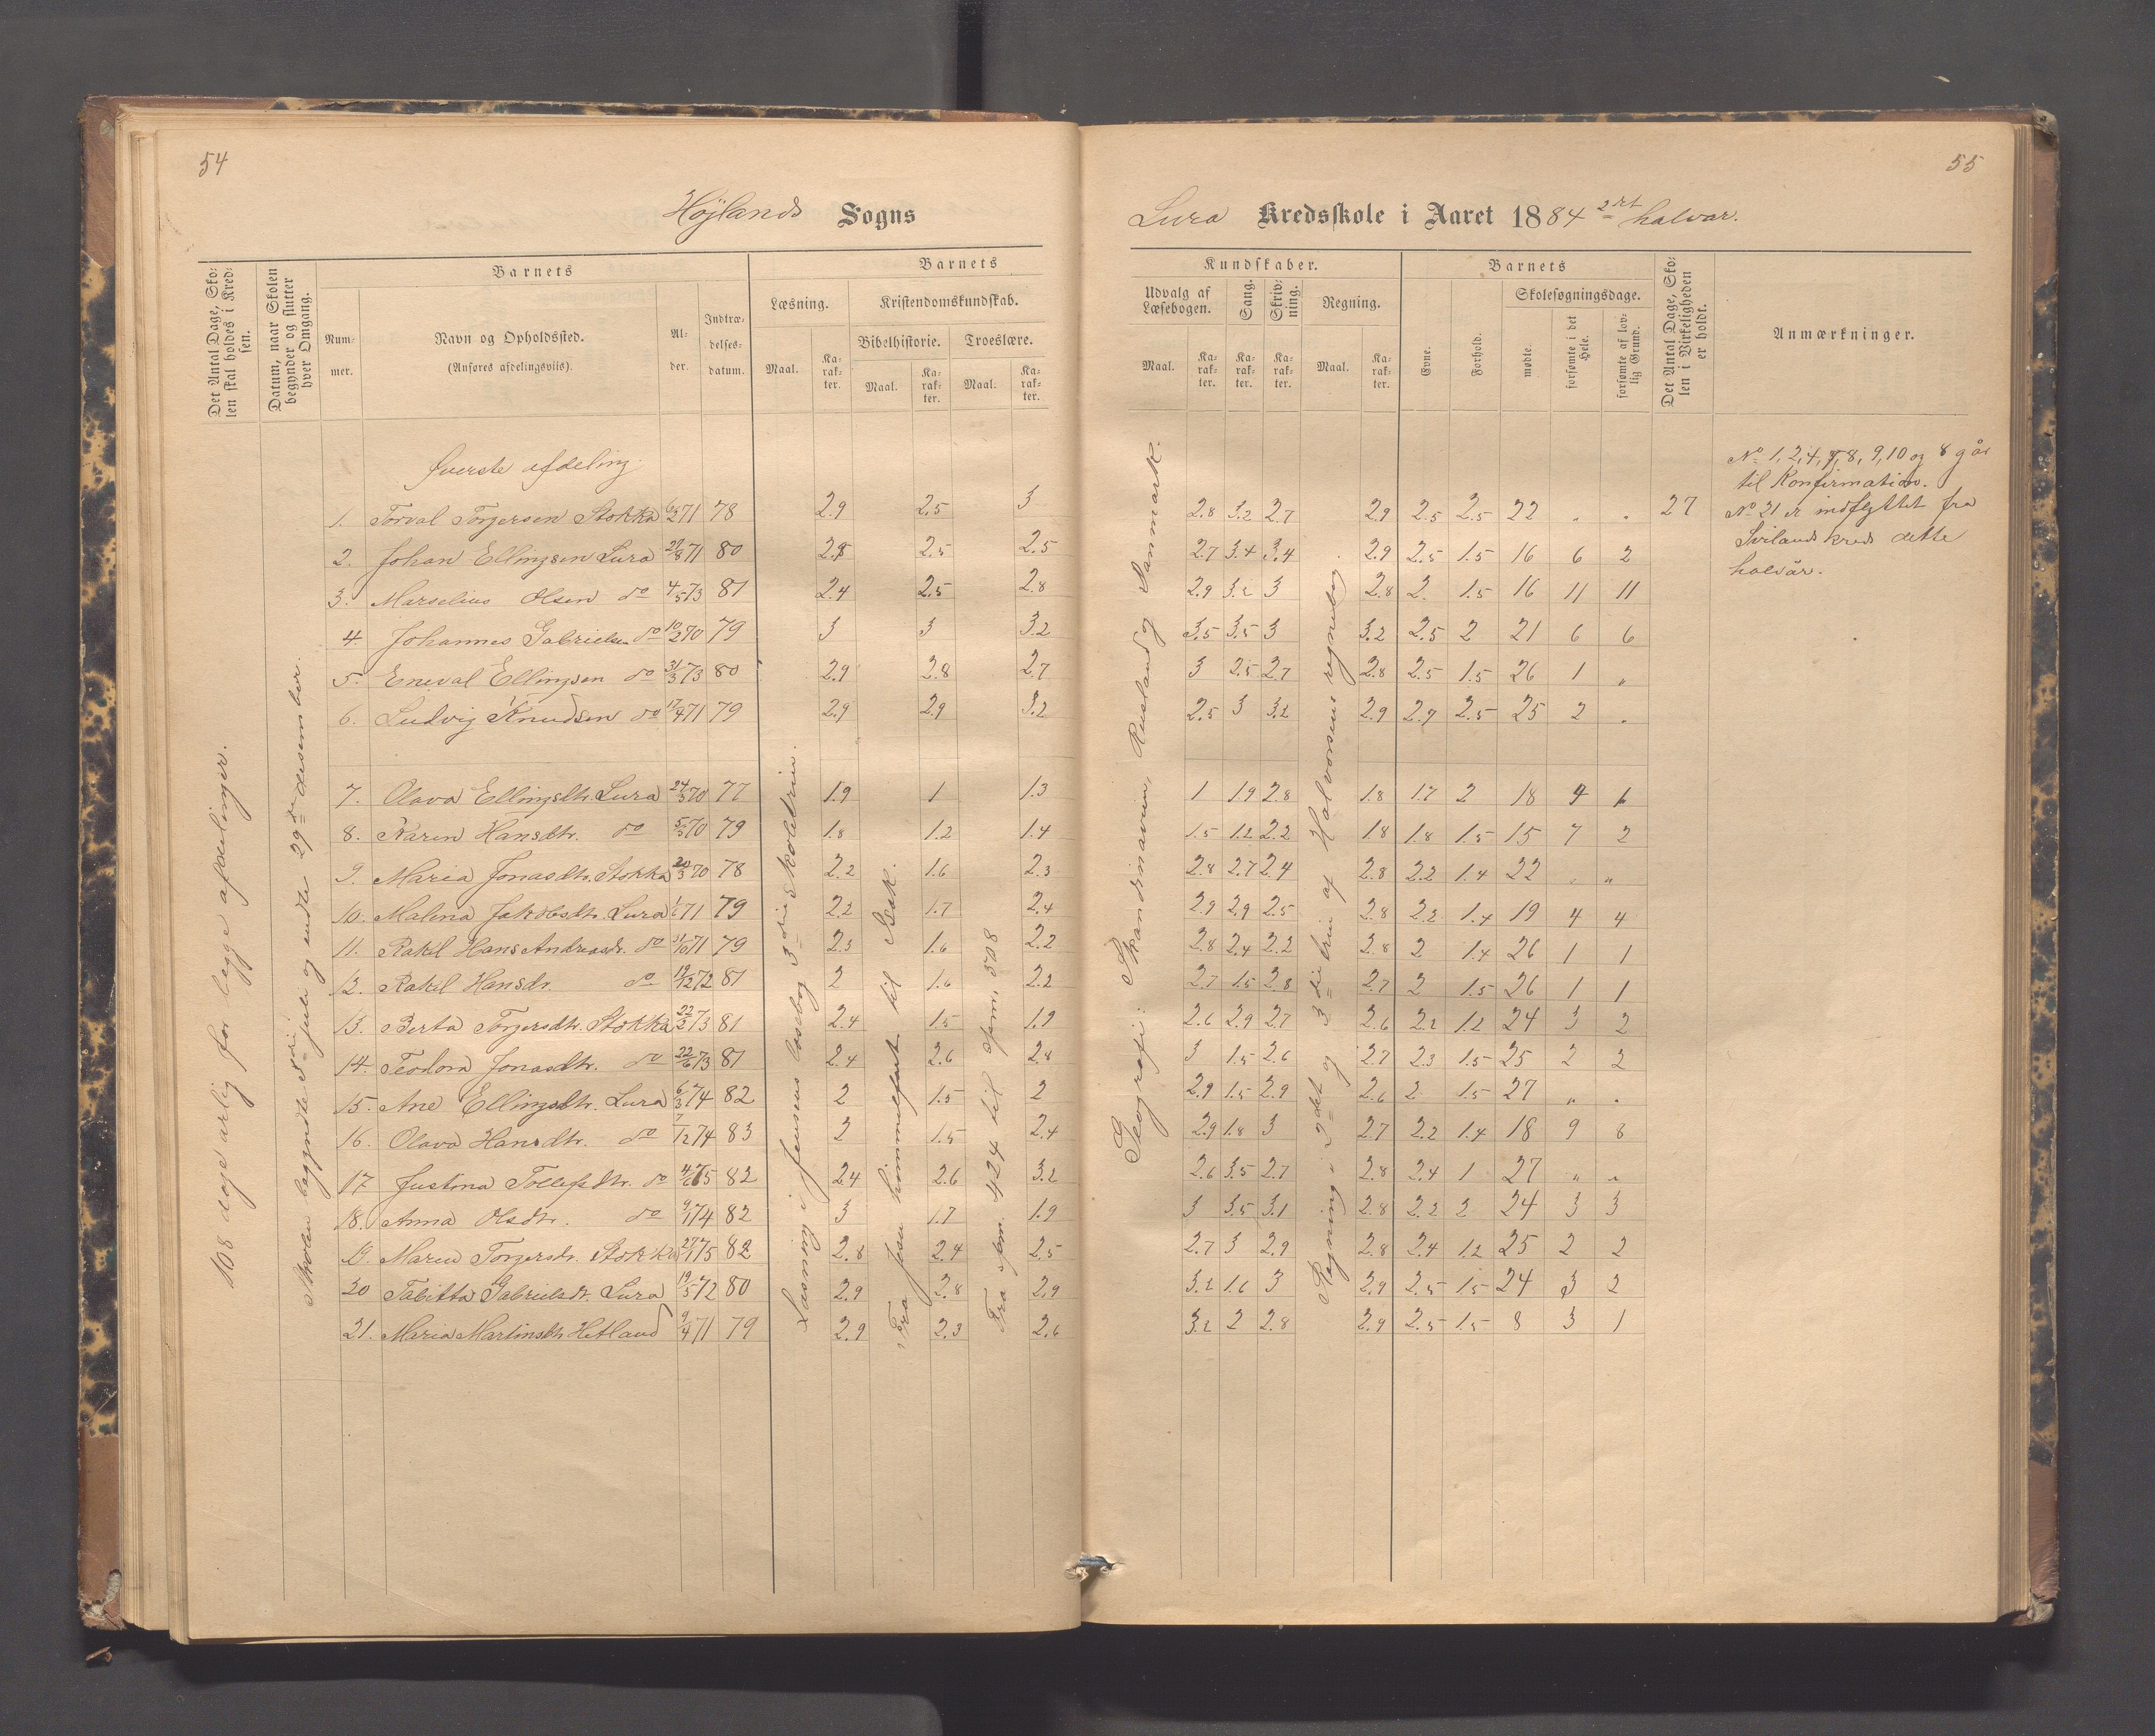 54
Højlands Sogns
Det Antal Dage, Sko-
len skal holdes i Kred-
sen.
Datum, naar Skolen
begynder og slutter
hver Omgang.
Barnets
Num-
mer.
Navn og Opholdssted.
(Anføres afdelingsviis).
Al-
der.
Indtræ-
delses-
datum.
Barnets
Læsning.
Kristendomskundskab.
Bibelhistorie. Troeslære.
Maal. Ka-
rak-
ter.
Maal. Ka-
rak-
ter.
Maal. Ka-
rak-
ter.
108 dage årlig for begge afdelinger.
Skolen begyndte juli og endte 29de desember.
Læsning i Jensens læsebog 3die skoletrin.
Fra Jesu himmelfart til Besk.
Fra spm. 424 til spm. 508
Øverste afdeling.
1. Torval Torjersen Stokka 71 78 2.9 2.5 3
2. Johan Ellingsen Lura 27/8 71 80 2.8 2.5 2.5
3. Marselius Olsen do 4/5 73 81 2.4 2.5 2.8
4. Johannes Gabrielsen do 10/2 70 79 3 3 3.2
5. Eneval Ellingsen do 31/3 73 80 2.9 2.8 2.7
6. Ludvig Knudsen do 17/4 71 79 2.9 2.9 3.2
7. Olava Ellingsdtr. Lura 24/3 70 77 1.9 1 1.3
8. Karen Hansdtr. do 5/3 70 79 1.8 1.2 1.4
9. Maria Jonasdtr. Stokka 70 78 2.2 1.6 2.3
10. Malena Jakobsdtr. Lura 71 79 2.2 1.7 2.4
11. Rakel Hans Andreasdr. do 31/10 71 79 2.3 1.6 2.2
12. Rakel Hansdr. do 19/12 72 81 2 1.6 2.2
13. Berta Torjersdtr. Stokka 22/2 73 81 2.4 1.5 1.9
14. Teodora Jonasdtr. do 22/6 73 81 2.4 2.6 2.8
15. Ane Ellingsdtr. Lura 6/3 74 82 2 1.5 2
16. Olava Hansdtr. do 7/12 74 83 2 1.5 2.4
17 Justina Tollefsdtr. do 75 82 2.4 2.6 3.2
18. Anna Olsdtr. do 9/1 74 82 3 1.7 1.9
19. Maren Torjersdr. Stokka 75 82 2.8 2.4 2.5
20 Tabitta Gabrielsdr. Lura 19/5 72 80 2.9 2.8 2.9
21. Maria Martinsdtr. Hetland 9/4 71 79 2.9 2.3 2.6
55
Lura Kredsskole i Aaret 1884 2det halvar.
Kundskaber.
Udvalg af
Læsebogen.
Sang.
Skriv-
ning.
Regning.
Maal. Ka-
rak-
ter.
Ka-
rak-
ter.
Ka-
rak-
ter.
Maal. Ka-
rak-
ter.
Barnets
Evne.
Forhold.
Skolesøgningsdage.
mødte.
forsømte i det
Hele.
forsømte af lov-
lig Grund.
Det Antal Dage, Sko-
len i Virkeligheden
er holdt.
Anmærkninger.
Geografi: Skandinavien, Rusland og Danmark.
Regning i 2det og 3die trin af Halvorsens regnebog
2.8 3.2 2.7 2.9 2.5 2.5 22 „ „ 27
2.7 3.4 3.4 2.9 2.5 1.5 16 6 2
2.9 3.2 3 2.8 2. 1.5 16 11 11
3.5 3.5 3 3.2 2.5 2 21 6 6
3 2.5 2.7 2.8 2.5 1.5 26 1 „
2.5 3 3.2 2.9 2.9 2.5 25 2 „
1 1.9 2.8 1.8 1.7 2 18 4 1
1.5 1.2 2.2 1.8 1.8 1.5 15 7 2
2.8 2.7 2.4 2.8 2.2 1.4 22 „ „
2.9 2.9 2.5 2.8 2.2 1.4 19 4 4
2.8 2.4 2.2 2.8 2 1.4 26 1 1
2.7 1.5 2.8 2.7 2 1.5 26 1 1
2.6 2.9 2.7 2.6 2.2 1.2 24 3 2
3 1.5 2.6 2.7 2.3 1.5 25 2 2
2.9 1.5 2.9 2.6 2 1.5 27 „ „
2.9 1.8 3 2.7 2.2 1.4 18 9 8
2.6 3.5 2.7 2.8 2.4 1 27 „ „
3 3.5 3.1 2.8 2.2 2 24 3 3
2.7 3 2.9 2.8 2.4 1.2 25 2 2
3.2 1.6 3 2.9 2.5 1.5 24 3 2
3.2 2 2.8 2.9 2.5 1.5 8 3 1
No 1, 2, 4, 7, 8, 9, 10 og 8 går
til Konfirmation.
No 21 er indflyttet fra
Svilands kreds dette
halvår.